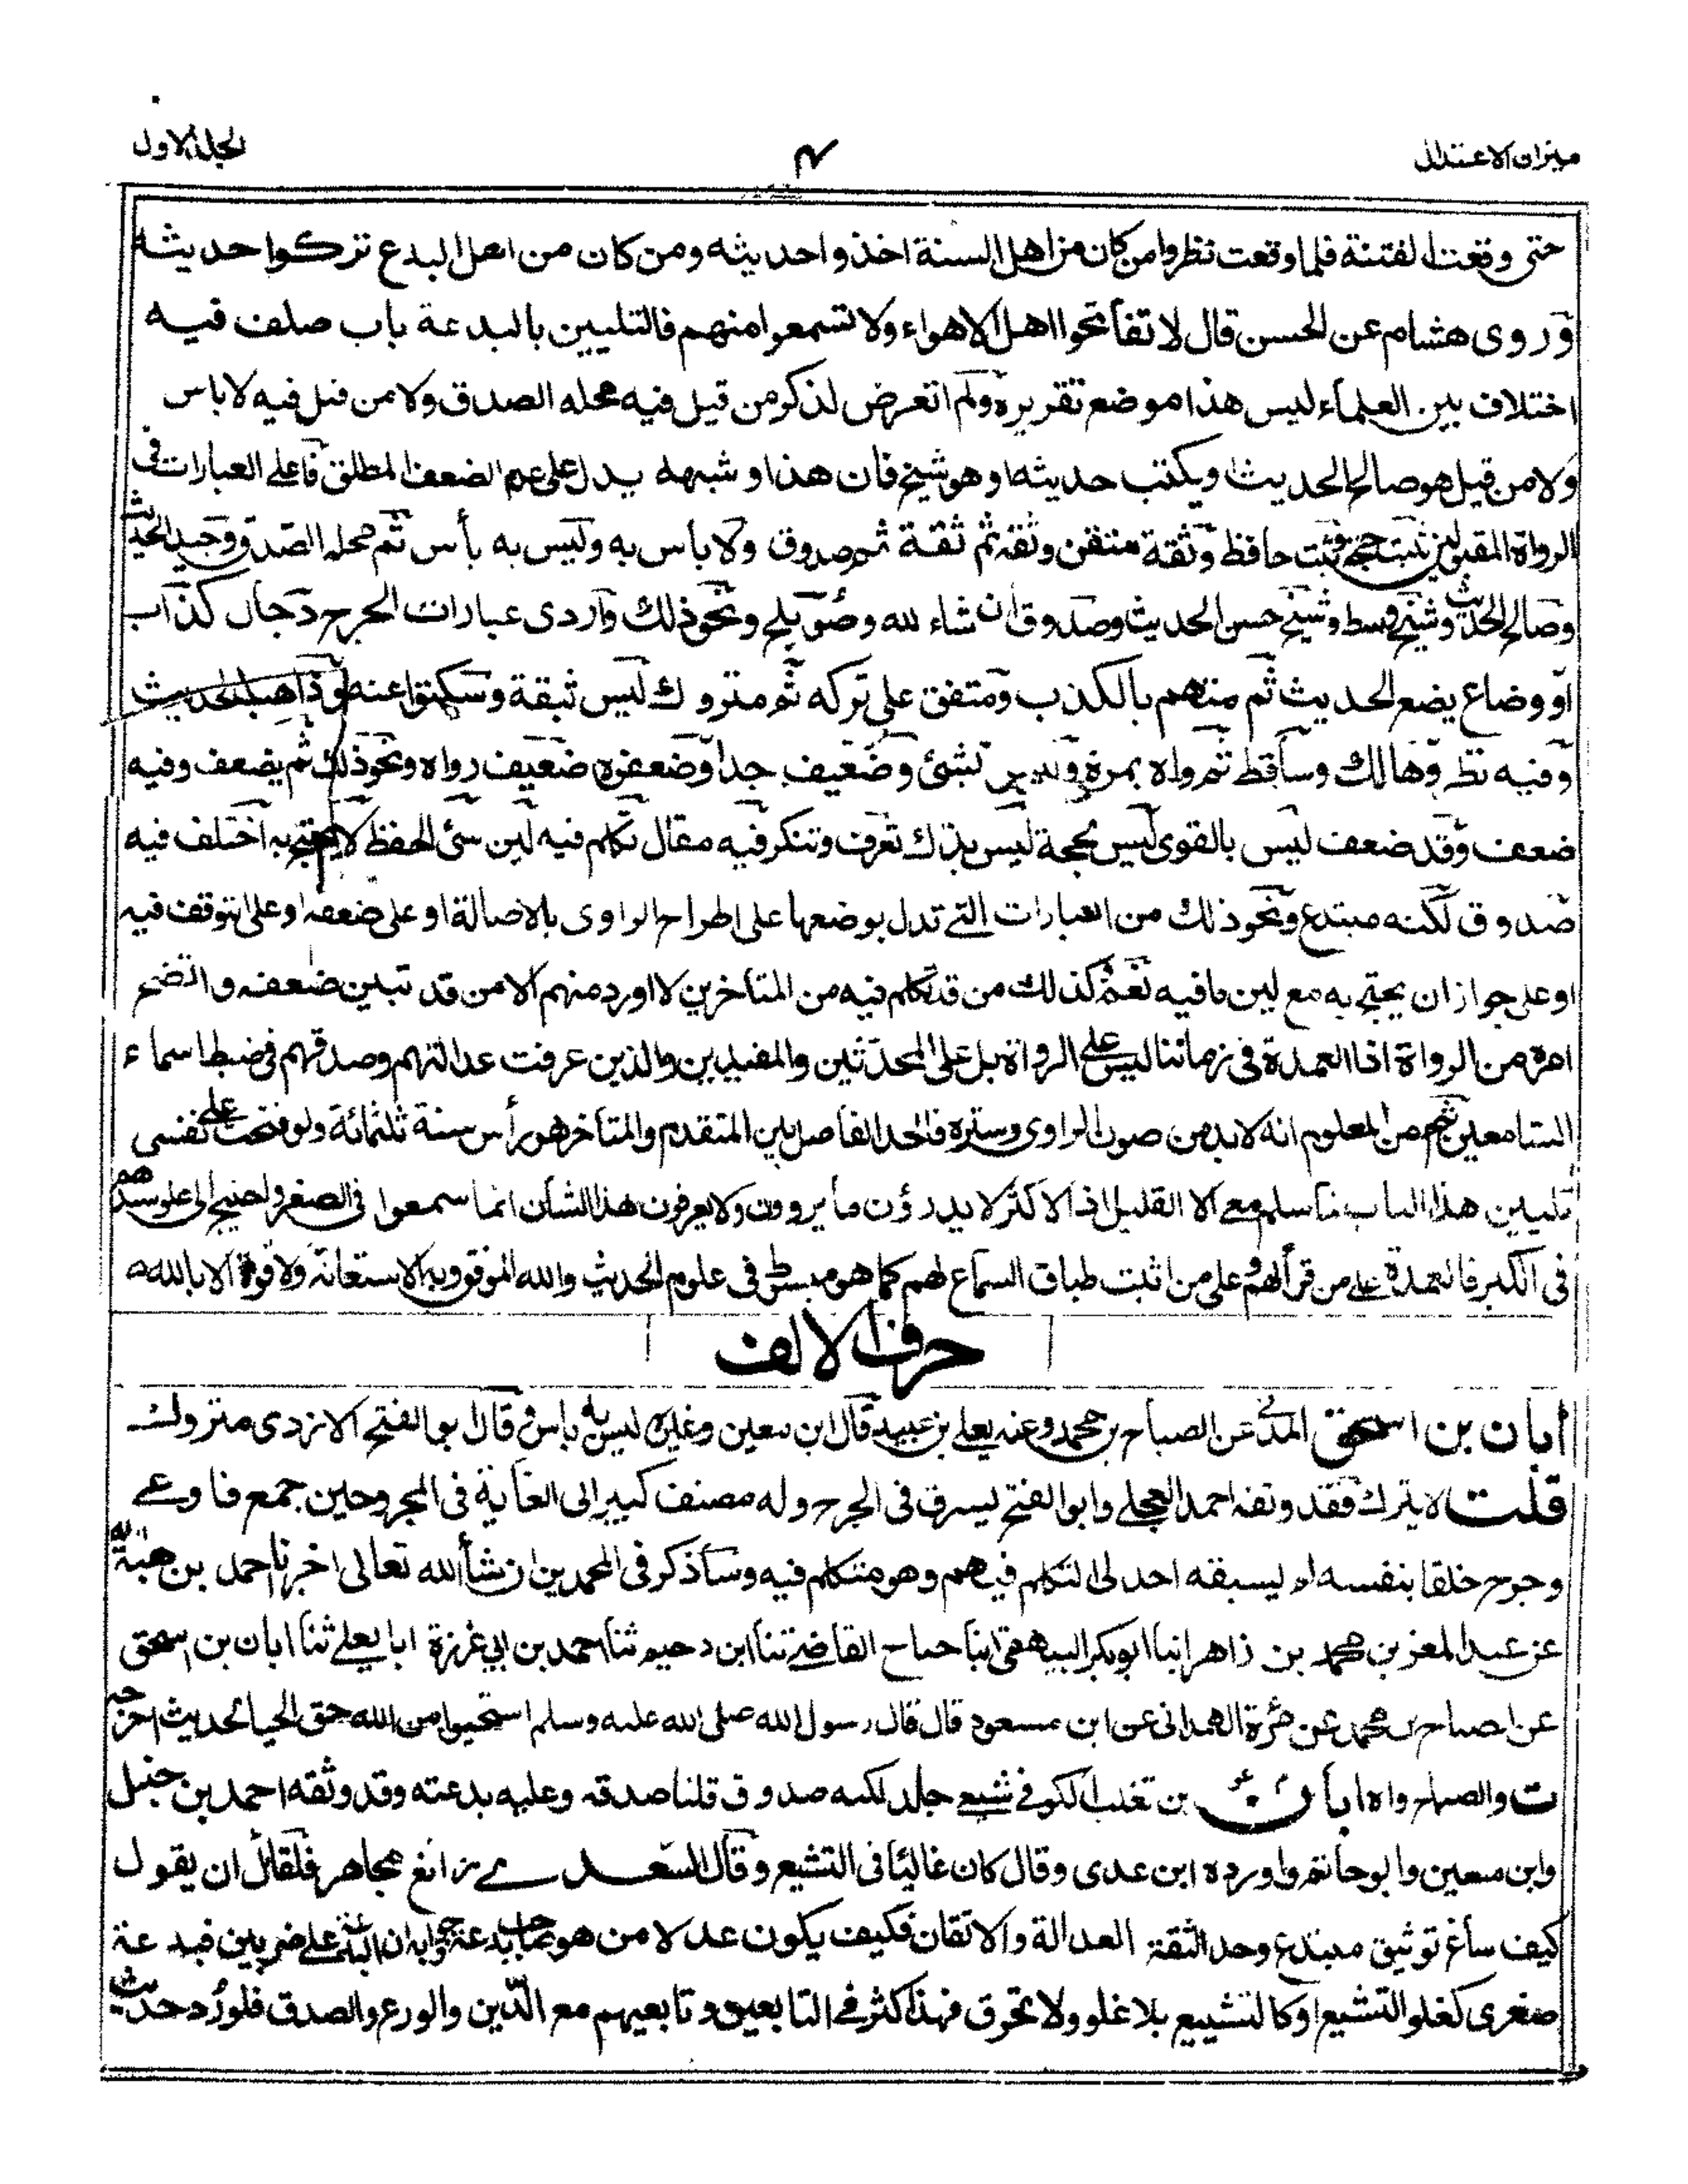 ميزان الاعتدال
٤
الجلد الاول
حتى وقعت الفتنة فلما وقعت نظروا من كان من اهل السنة اخذوا حديثه ومن كان من اهل البدع تركوا حديثه
وروى هشام عن الحسن قال لا تفاتحوا اهل الاهواء ولا تسمعوا منهم فالتليين بالبدعة باب صلف فيه
اختلاف بين العلماء ليس هذا موضع تقريره ولم اتعرض لذكر من قيل فيه محله الصدق ولا من قيل فيه لا باس
ولا من قيل هو صالح الحديث او يكتب حديثه او هو شيخ فان هذا وشبهه يدل على عدم الضعف المطلق فاعلى العبارات فى
الرواة المقبولين ثبت حجة وثبت حافظ وثقة متقن وثقة ثم ثقة ثم صدوق ولا باس به وليس به بأس ثم محله الصدق وجيد الحديث
وصالح الحديث وشيخ وسط وشيخ حسن الحديث وصدوق ان شاء لله وصويلح ونحو ذلك واردى عبارات الجرح دجال كذاب
او وضاع يضع الحديث ثم متهم بالكذب ومتفق على تركه ثم متروك ليس ثبقة وسكتوا عنه وذاهب الحديث
وفيه نظر وهالك وساقط ثم واه بمرة وليس بشئ وضعيف جدا وضعفوه ضعيف رواه ونحو ذلك ثم يضعف وفيه
ضعف وقد ضعف ليس بالقوى ليس بحجة ليس بذاك تعرف وتنكر فيه مقال تكلم فيه لين سئ الحفظ لا يحتج به اختلف فيه
صدوق لكنه مبتدع ونحو ذلك من العبارات التے تدل بوضعها على اطراح الراوى بالاصالة او على ضعفه او على التوقف فيه
او على جواز ان يحتج به مع لين ما فيه نعم كذلك من قد تكلم فيه من المتاخرين لا اورد منهم الا من قد تبين ضعفه واتضح
امره من الرواة اذا العمدة فى زماننا ليس على الرواة بل على المحدثين والمفيدين والذين عرفت عدالتهم وصدقهم فى ضبط اسماء
السامعين ثم من المعلوم انه لا بد من صون الراوى وستره فالحد الفاصل بين المتقدم والمتاخر هو رأس سنة ثلثمائة ولو فتحت على نفسى
تليين هذا الباب ما سلم مع الا القليل اذ الاكثر لا يدرؤن ما يروون ولا يعرفون هذا الشأن انما سمعوا فى الصغر واحتيج الى علو سندهم
فى الكبر فالعمدة على من قرأ لهم وعلى من اثبت طباق السماع لهم كما هو مبسط فى علوم الحديث والله الموفق وبه الاستعانة ولا قوة الا بالله
حرف الالف
أبان بن اسحق المدنى عن الصباح بن محمد وعنه يعلى بن عبيد قال ابن معين وغيره ليس به باس وقال ابو الفتح الازدى متروك
قلت لا يترك فقد وثقه احمد العجلے وابو الفتح يسرف فى الجرح وله مصنف كبير الى الغاية فى المجروحين جمع فاوعے
وجرح خلقا بنفسه لم يسبقه احد الى التكلم فيهم وهو متكلم فيه وسأذكر فى المحمدين ان شأ الله تعالى اخبرنا احمد بن هبة الله
عن عبد المعز بن محمد بن زاهر انبا ابو بكر البيهقى انبأ جناح القاضے ثنا ابن دحيم ثنا احمد بن ابى غرزة ابا يعلے ثنا ابان بن اسحق
عن الصباح بن محمد عن مرة الهمدانى عن ابن مسعود قال قال رسول الله صلى الله عليه وسلم استحيوا من الله حق الحيا الحديث اخرجه
ت والصباح واه ابان بن تغلب الكوفے شيعے جلد لكنه صدوق قلنا صدقه وعليه بدعته وقد وثقه احمد بن حنبل
وابن معين وابو حاتم واورده ابن عدى وقال كان غاليا فى التشيع وقال السعدے زائغ مجاهر فلقائل ان يقول
كيف ساغ توثيق مبتدع وحد الثقة العدالة والاتقان فكيف يكون عدلا من هو صاحب بدعة وجوابه ان البدعة على ضربين فبدعة
صغرى كغلو التشيع او كالتشيع بلا غلو ولا تحرق فهذا كثر فے التابعين وتابعيهم مع الدين والورع والصدق فلو رد حديث